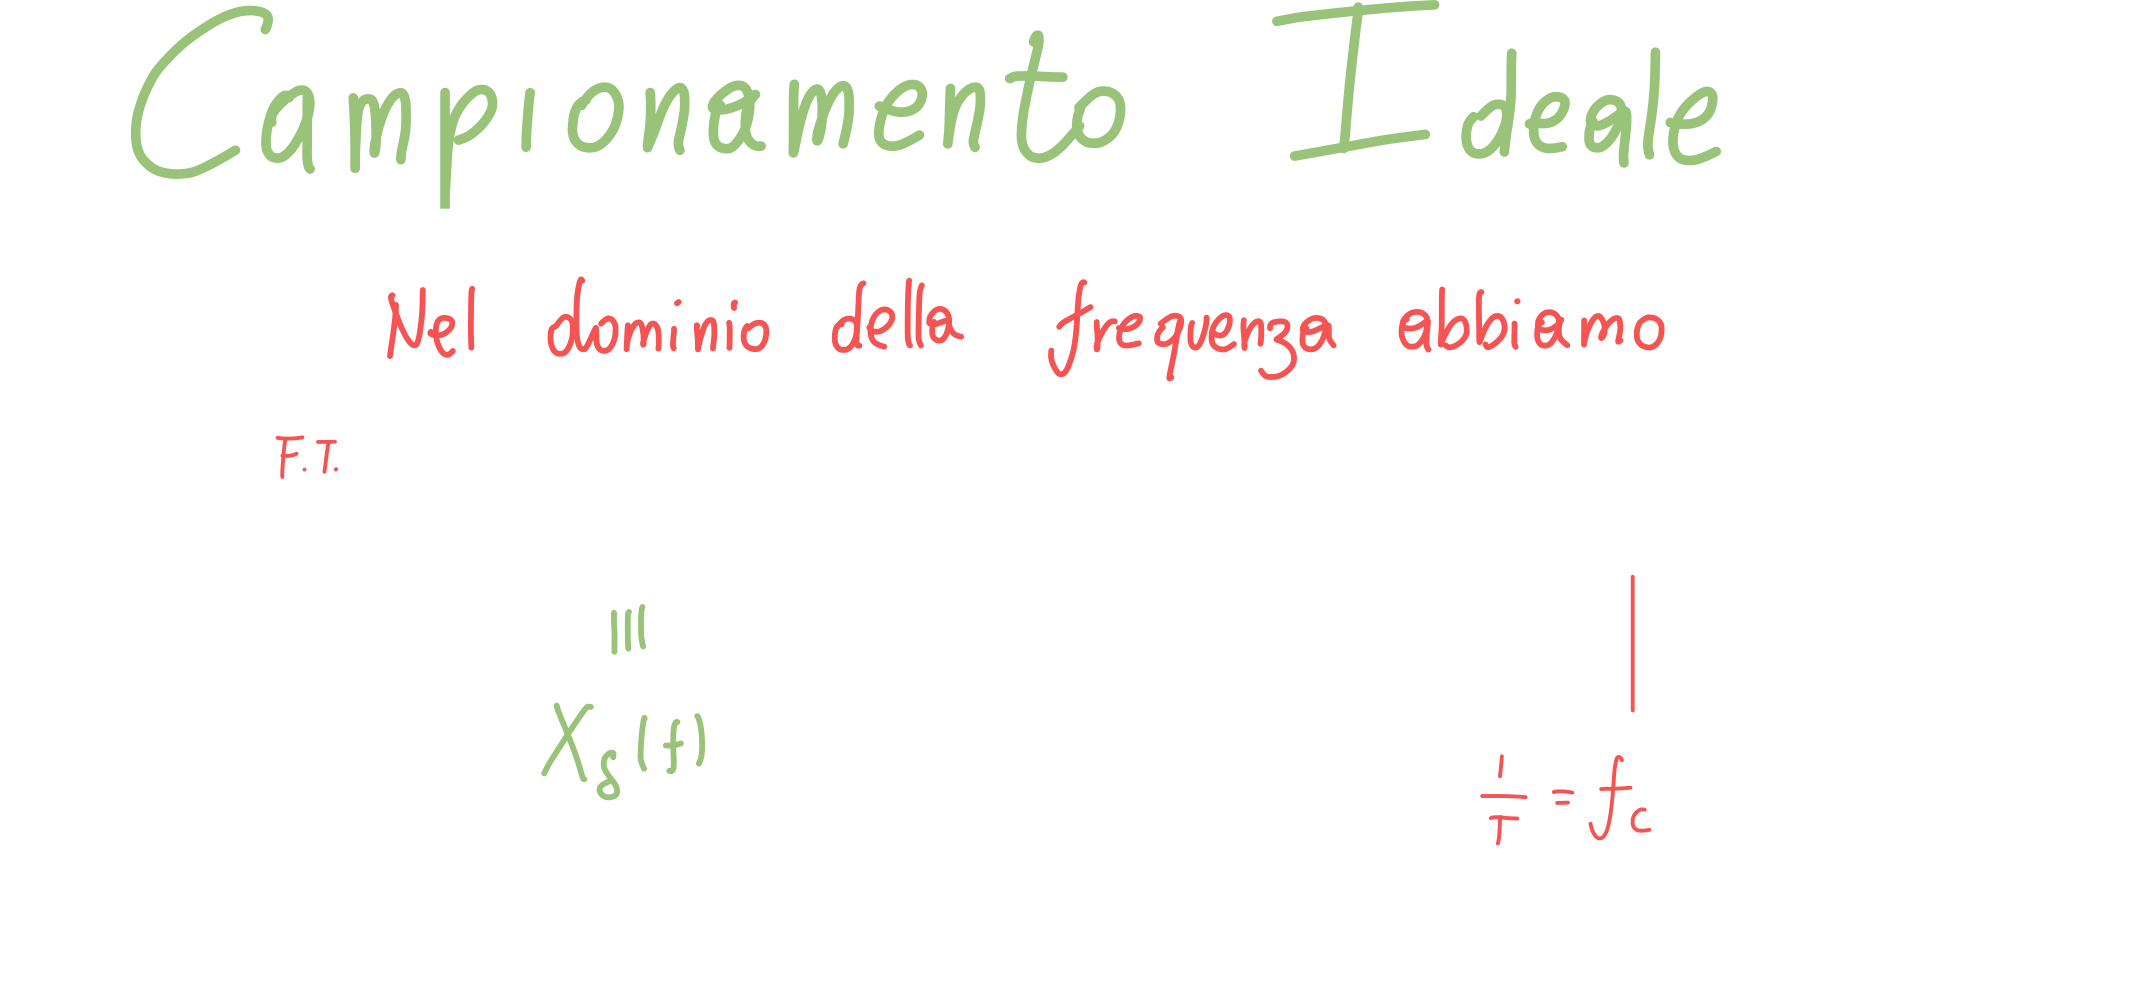 Campionamento Ideale
Nel dominio della frequenza abbiamo
F.T.
|||
X_δ(f)
1/T = f_c